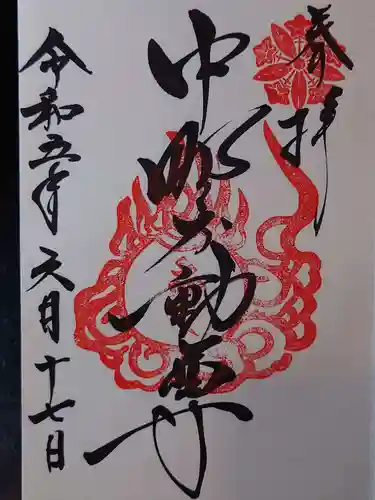 奉拝
中野不動尊
令和五年 六月十七日